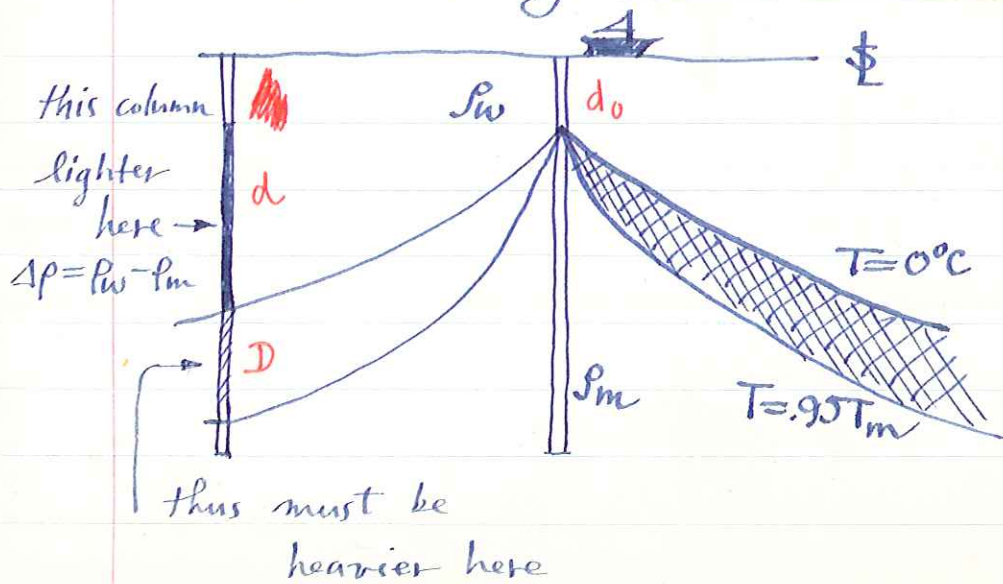 this column
lighter
here →
Δρ = ρw - ρm
d
D
ρw
d₀
ρm
T = 0°C
T = .95Tm
thus must be
heavier here